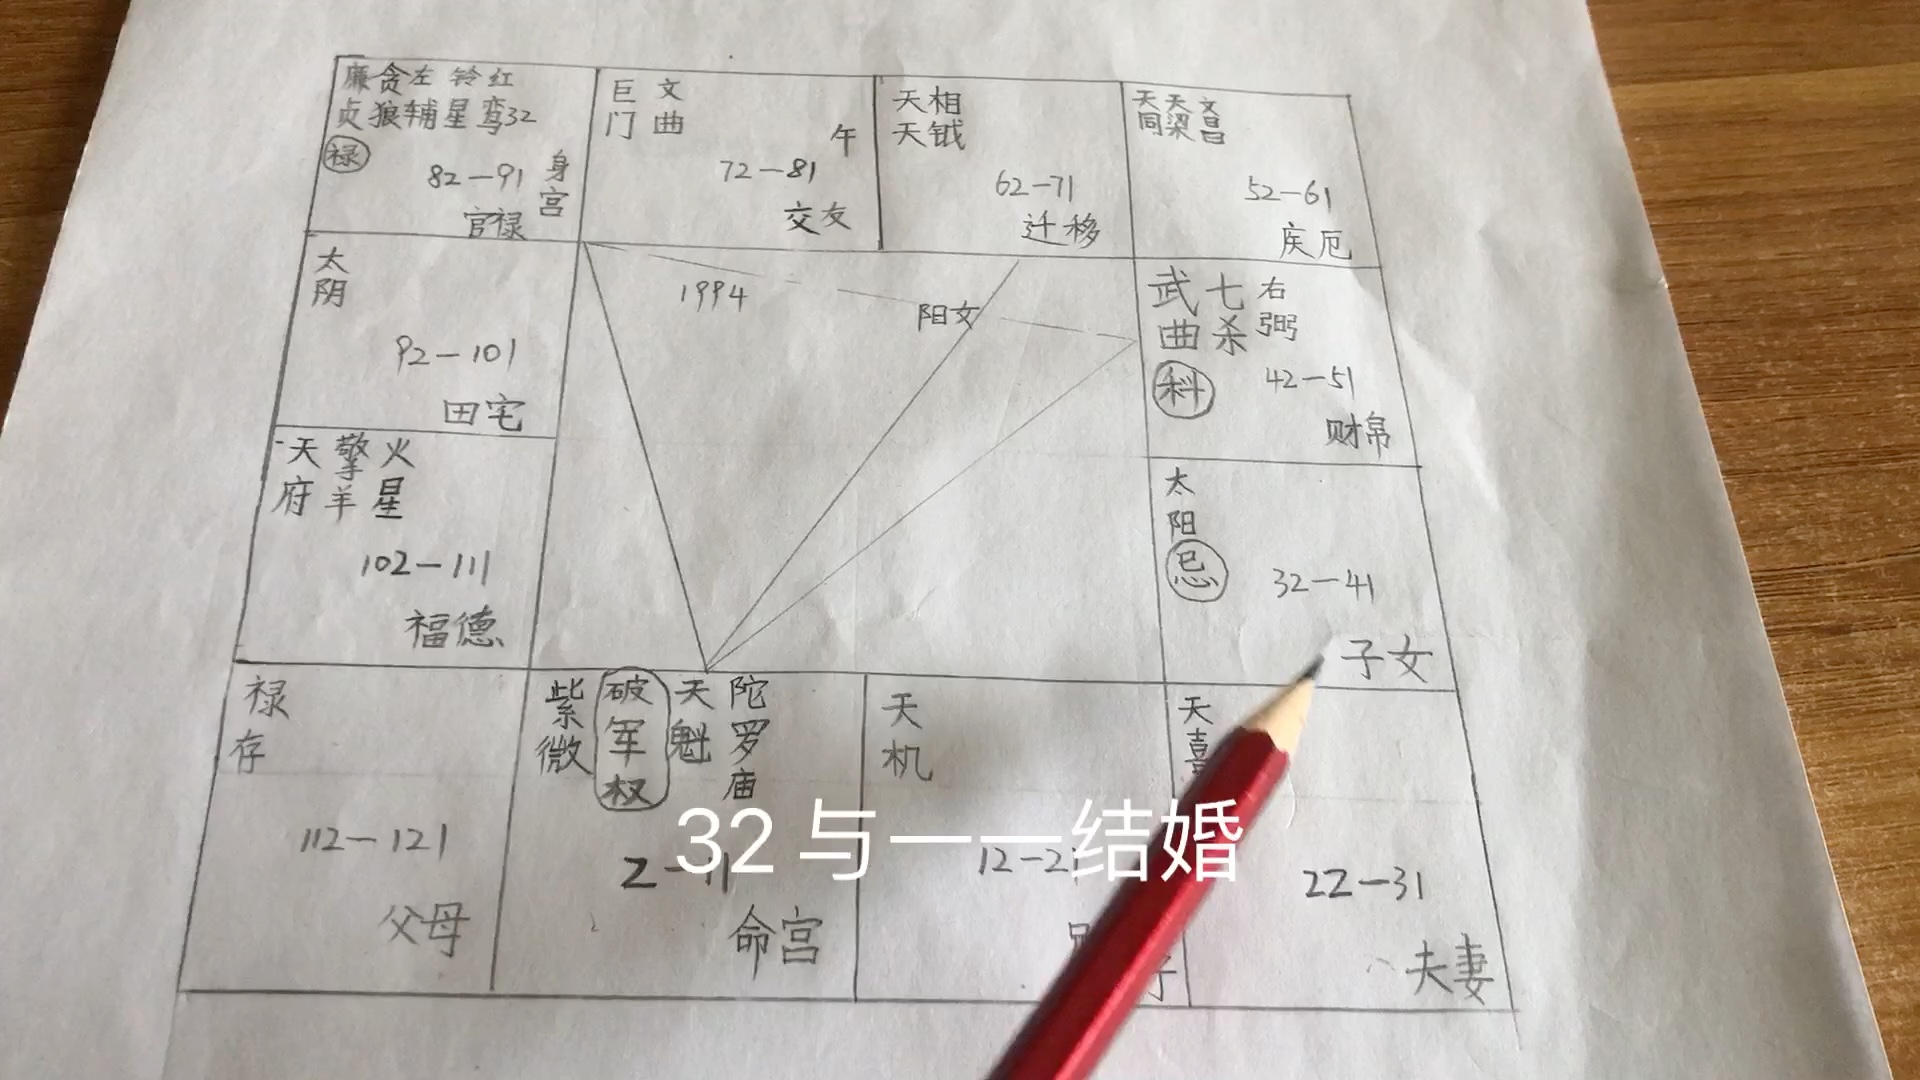 廉贪左铃红
贞狼辅星鸾32
禄
82-91
身宫
官禄
巨门
文曲
午
72-81
交友
天相
天钺
62-71
迁移
天同
天梁
文昌
52-61
疾厄
太阴
92-101
田宅
1994
阳女
武曲
七杀
右弼
科
42-51
财帛
天府
擎羊
火星
102-111
福德
太阳
忌
32-41
子女
禄存
112-121
父母
紫微
破军权
天魁
陀罗庙
2-11
命宫
天机
12-21
天喜
22-31
夫妻
32与一一结婚